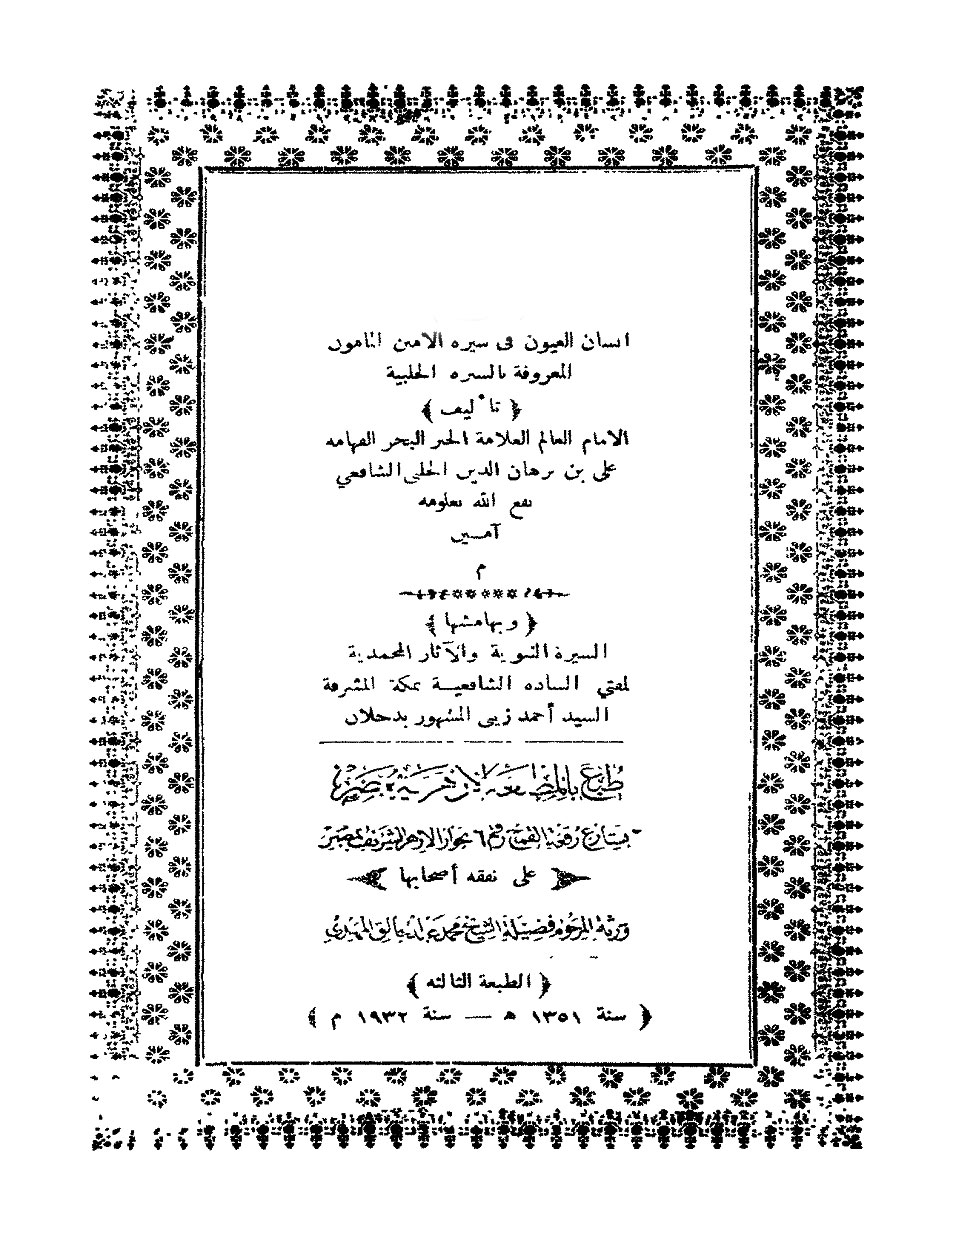 انسان العيون في سيرة الامين المأمون
المعروفة بالسيرة الحلبية
﴿ تأليف ﴾
الامام العالم العلامة الحبر البحر الفهامة
علي بن برهان الدين الحلبي الشافعي
نفع الله بعلومه
آمــين
م
﴿ وبهامشها ﴾
السيرة النبوية والآثار المحمدية
لمفتي السادة الشافعيــة بمكة المشرفة
السيد أحمد زيني المشهور بدحلان
طبع بالمطبعة الازهرية بمصر
بشارع رقعة القمح رقم ٦ بجوار الازهر الشريف بمصر
على نفقة أصحابها
ورثة المرحوم فضيلة الشيخ محمد عبد الخالق المهدي
﴿ الطبعة الثالثة ﴾
﴿ سنة ١٣٥١ هـ — سنة ١٩٣٢ م ﴾